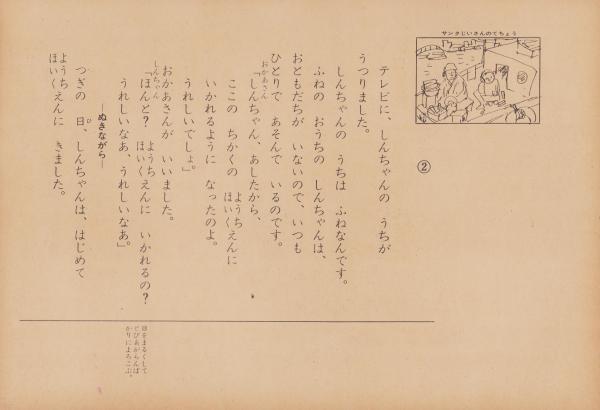 サンタじいさんのてちょう
②
テレビに、しんちゃんの うちが
うつりました。
しんちゃんの うちは ふねなんです。
ふねの おうちの しんちゃんは、
おともだちが いないので、いつも
ひとりで あそんで いるのです。
おかあさん「しんちゃん、あしたから、
ここの ちかくの ようち ほいくえんに
いかれるように なったのよ。
うれしいでしょ」
おかあさんが いいました。
しんちゃん「ほんと？ ようち ほいくえんに いかれるの？
うれしいなあ、うれしいなあ」
―ぬきながら―
つぎの 日、しんちゃんは、はじめて
ようち ほいくえんに きました。
目をまるくして
とびあがらんば
かりによろこぶ。